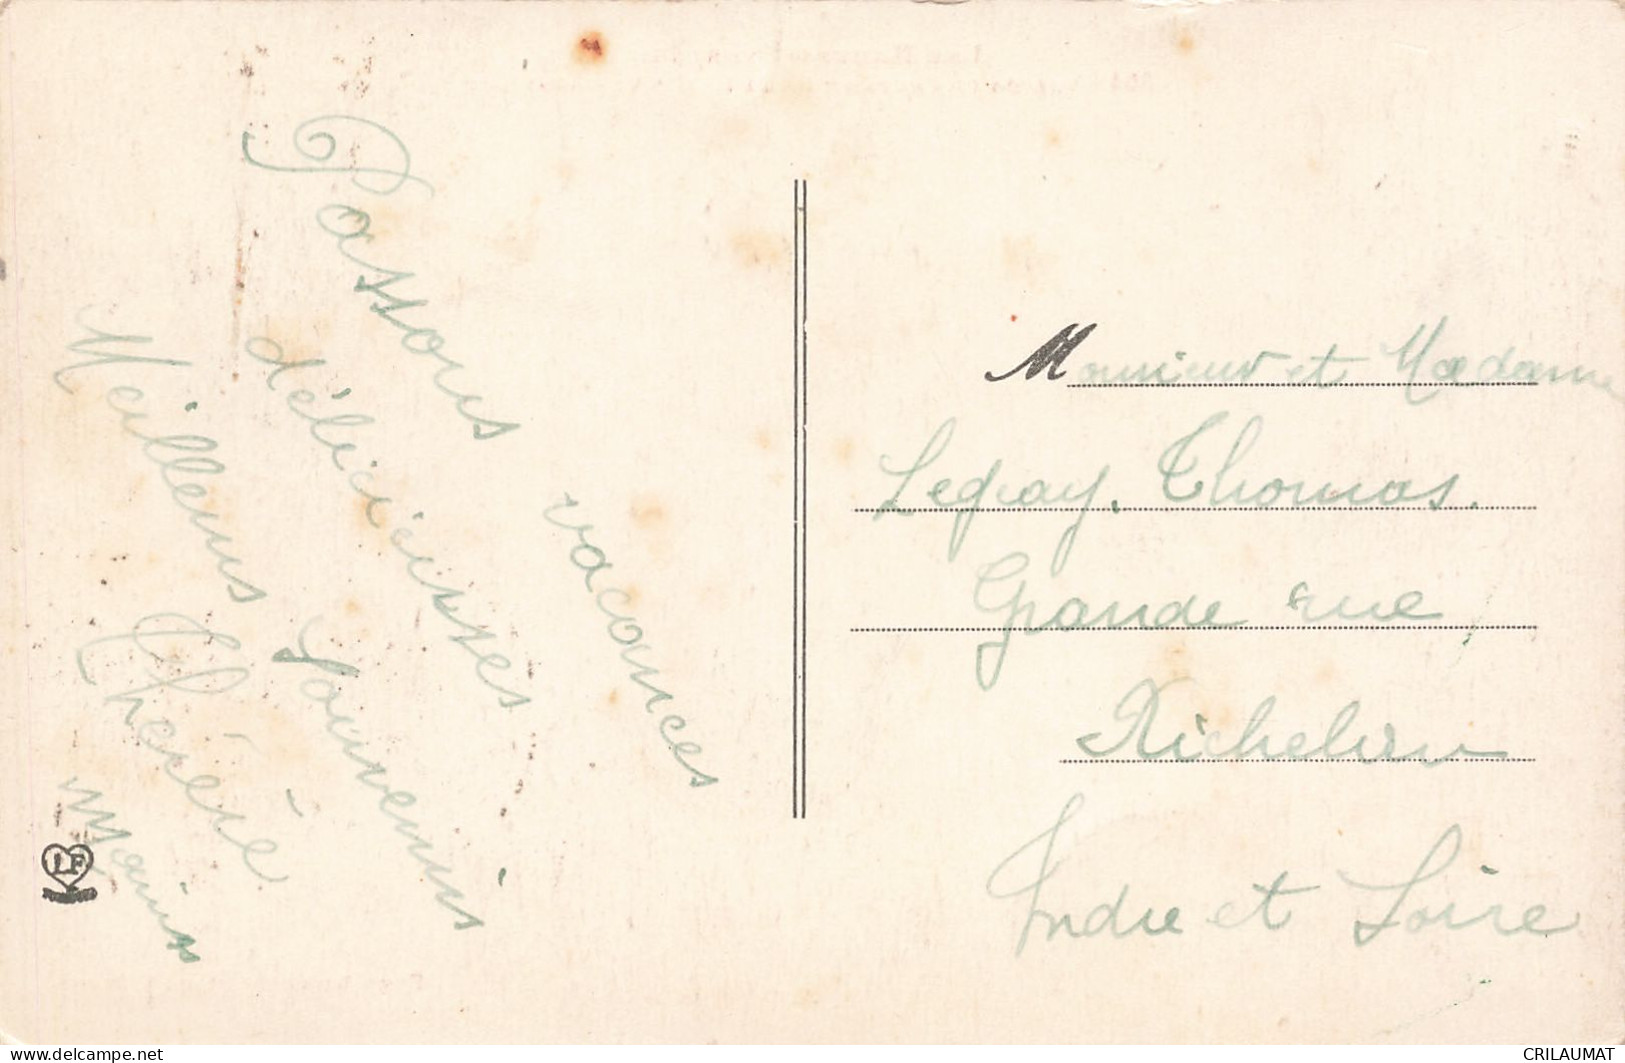 Passons vacances
délicieuses
Meilleurs Souvenirs
Thérèse
Marius
LF
Monsieur et Madame
Legay. Thomas.
Grande rue
Richelieu
Indre et Loire
www.delcampe.net
CRILAUMAT